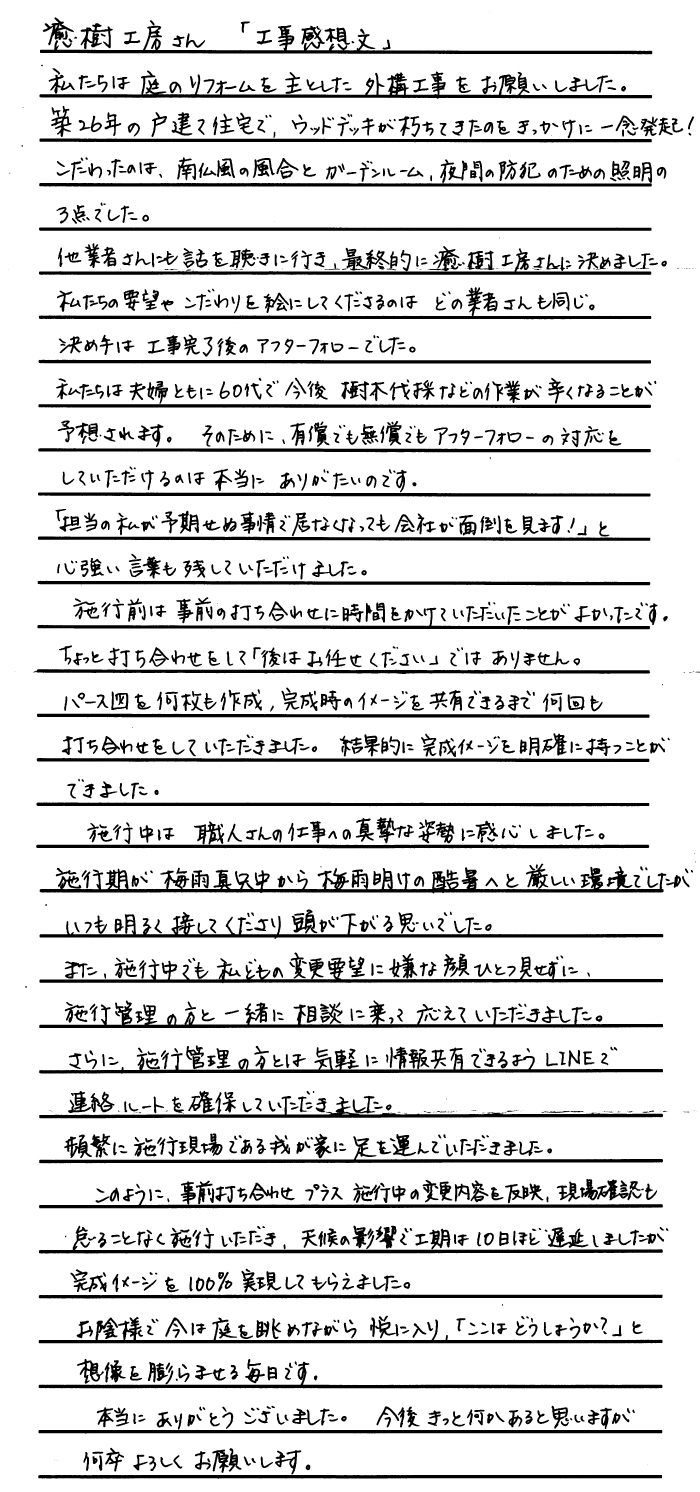 癒樹工房さん 「工事感想文」
私たちは庭のリフォームを主とした外構工事をお願いしました。
築26年の戸建て住宅で、ウッドデッキが朽ちてきたのをきっかけに一念発起！
こだわったのは、南仏風の風合とガーデンルーム、夜間の防犯のための照明の
3点でした。
他業者さんにも話を聴きに行き、最終的に癒樹工房さんに決めました。
私たちの要望やこだわりを絵にしてくださるのはどの業者さんも同じ。
決め手は工事完了後のアフターフォローでした。
私たちは夫婦ともに60代で今後樹木伐採などの作業が辛くなることが
予想されます。 そのために、有償でも無償でもアフターフォローの対応を
していただけるのは本当にありがたいのです。
「担当の私が予期せぬ事情で居なくなっても会社が面倒を見ます！」と
心強い言葉も残していただけました。
施行前は事前の打ち合わせに時間をかけていただいたことがよかったです。
ちょっと打ち合わせをして「後はお任せください」ではありません。
パース図を何枚も作成、完成時のイメージを共有できるまで何回も
打ち合わせをしていただきました。 結果的に完成イメージを明確に持つことが
できました。
施行中は 職人さんの仕事への真摯な姿勢に感心しました。
施行期が梅雨真只中から梅雨明けの酷暑へと厳しい環境でしたが
いつも明るく接してくださり頭が下がる思いでした。
また、施行中でも私どもの変更要望に嫌な顔ひとつ見せずに、
施行管理の方と一緒に相談に乗って応えていただきました。
さらに、施行管理の方とは気軽に情報共有できるようLINEで
連絡ルートを確保していただきました。
頻繁に施行現場である我が家に足を運んでいただきました。
このように、事前打ち合わせプラス施行中の変更内容を反映、現場確認も
怠ることなく施行いただき、天候の影響で工期は10日ほど遅延しましたが
完成イメージを100%実現してもらえました。
お陰様で今は庭を眺めながら悦に入り、「ここはどうしようか？」と
想像を膨らませる毎日です。
本当にありがとうございました。 今後きっと何かあると思いますが
何卒よろしくお願いします。